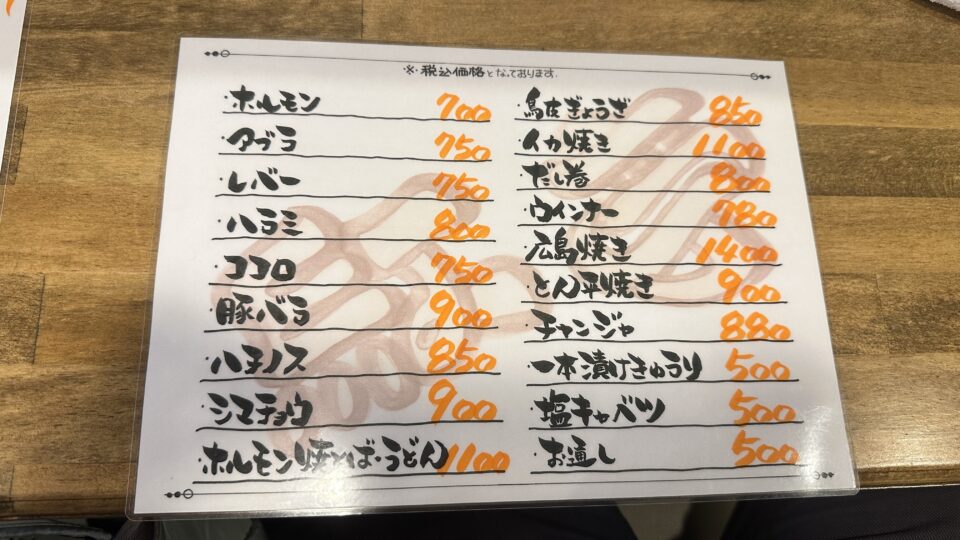 ※税込価格となっております。
・ホルモン 700
・アブラ 750
・レバー 750
・ハラミ 800
・ココロ 750
・豚バラ 900
・ハチノス 850
・シマチョウ 900
・ホルモン焼そば・うどん 1100
・鳥皮ぎょうざ 850
・イカ焼き 1100
・だし巻 800
・ウインナー 780
・広島焼き 1400
・とん平焼き 900
・チャンジャ 880
・一本漬けきゅうり 500
・塩キャベツ 500
・お通し 500